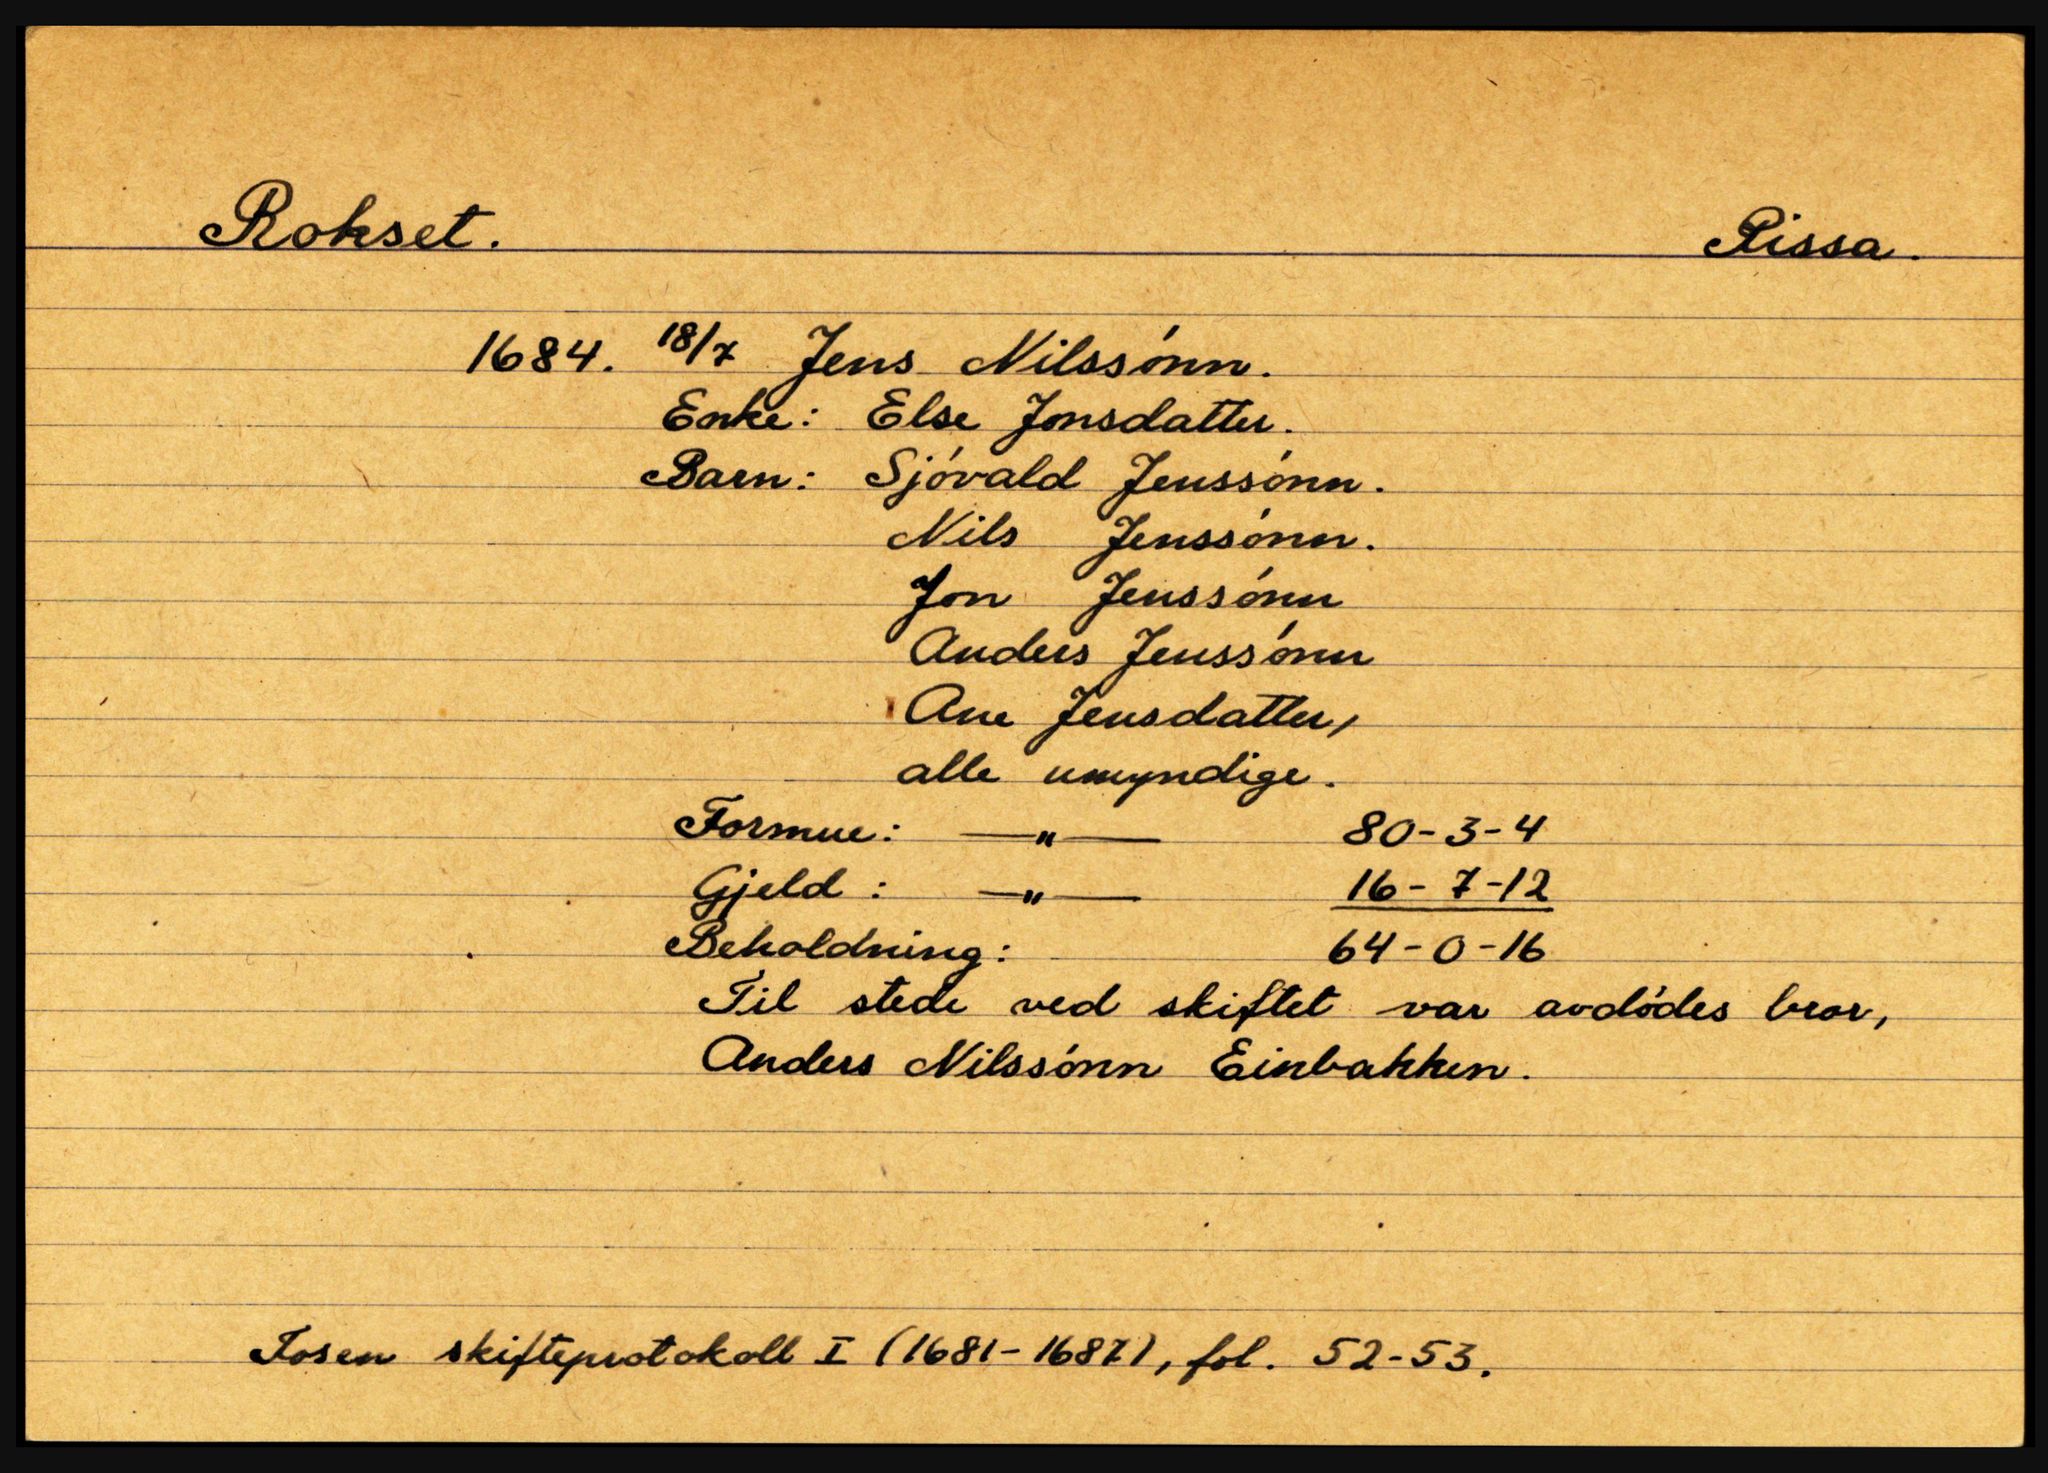 Rokset. Rissa.
1684. 18/7 Jens Nilssónn.
Enke: Else Jonsdatter.
Barn: Sjóvald Jenssónn.
Nils Jenssónn.
Jon Jenssónn
Anders Jenssónn
Ane Jensdatter,
alle umyndige.
Formue: —"— 80-3-4
Gjeld: —"— 16-7-12
Beholdning: 64-0-16
Til stede ved skiftet var avdódes bror,
Anders Nilssónn Einbakken.
Fosen skifteprotokoll I (1681-1687), fol. 52-53.